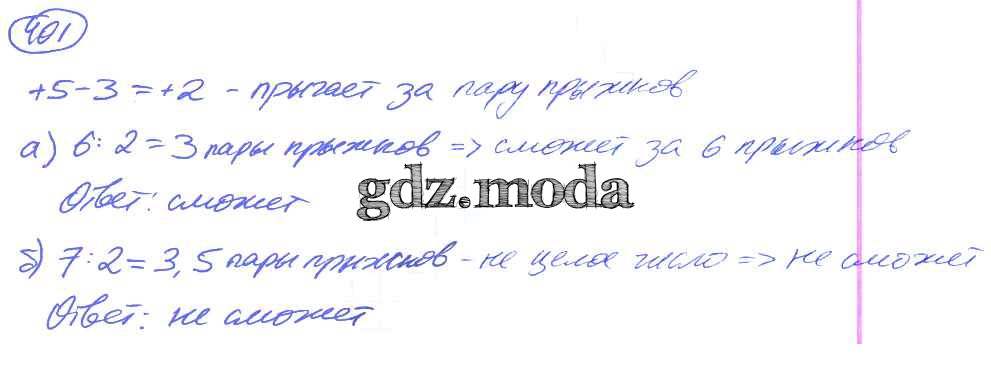 401
+5-3=+2 - прыгает за пару прыжков
а) 6:2=3 пары прыжков => сможет за 6 прыжков
Ответ: сможет
gdz.moda
б) 7:2=3,5 пары прыжков - не целое число => не сможет
Ответ: не сможет